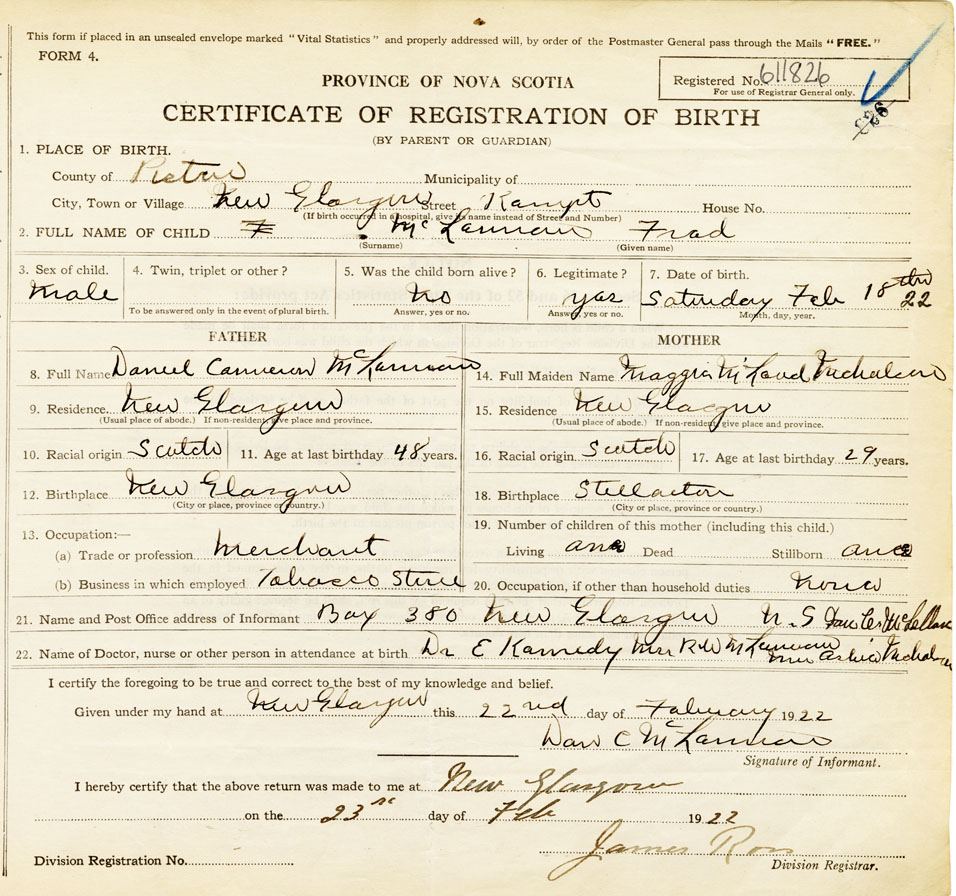 This form if placed in an unsealed envelope marked "Vital Statistics" and properly addressed will, by order of the Postmaster General pass through the Mails "FREE."
FORM 4.
PROVINCE OF NOVA SCOTIA
Registered No. 611826
For use of Registrar General only.
CERTIFICATE OF REGISTRATION OF BIRTH
(BY PARENT OR GUARDIAN)
1. PLACE OF BIRTH.
County of Pictou Municipality of
City, Town or Village New Glasgow Street Kampt House No.
(If birth occurred in a hospital, give its name instead of Street and Number)
2. FULL NAME OF CHILD McLannan Frad
(Surname) (Given name)
3. Sex of child. 4. Twin, triplet or other? 5. Was the child born alive? 6. Legitimate? 7. Date of birth.
Male No yas Saturday Feb 18th 22
To be answered only in the event of plural birth. Answer, yes or no. Answer, yes or no. Month, day, year.
FATHER MOTHER
8. Full Name Daniel Cameron McLannan 14. Full Maiden Name Maggie McLaud Nicholson
9. Residence. New Glasgow 15. Residence New Glasgow
(Usual place of abode.) If non-resident, give place and province. (Usual place of abode.) If non-resident, give place and province.
10. Racial origin Scotch 11. Age at last birthday 48 years. 16. Racial origin Scotch 17. Age at last birthday 29 years.
12. Birthplace New Glasgow 18. Birthplace Stellarton
(City or place, province or country.) (City or place, province or country.)
13. Occupation:— 19. Number of children of this mother (including this child.)
(a) Trade or profession Merchant Living one Dead Stillborn one
(b) Business in which employed Tobacco Store 20. Occupation, if other than household duties None
21. Name and Post Office address of Informant Box 380 New Glasgow N.S
22. Name of Doctor, nurse or other person in attendance at birth Dr E Kannedy
I certify the foregoing to be true and correct to the best of my knowledge and belief.
Given under my hand at New Glasgow this 22nd day of February 1922
Dan C McLannan
Signature of Informant.
I hereby certify that the above return was made to me at New Glasgow
on the 23rd day of Feb 1922
James Ross
Division Registration No. Division Registrar.